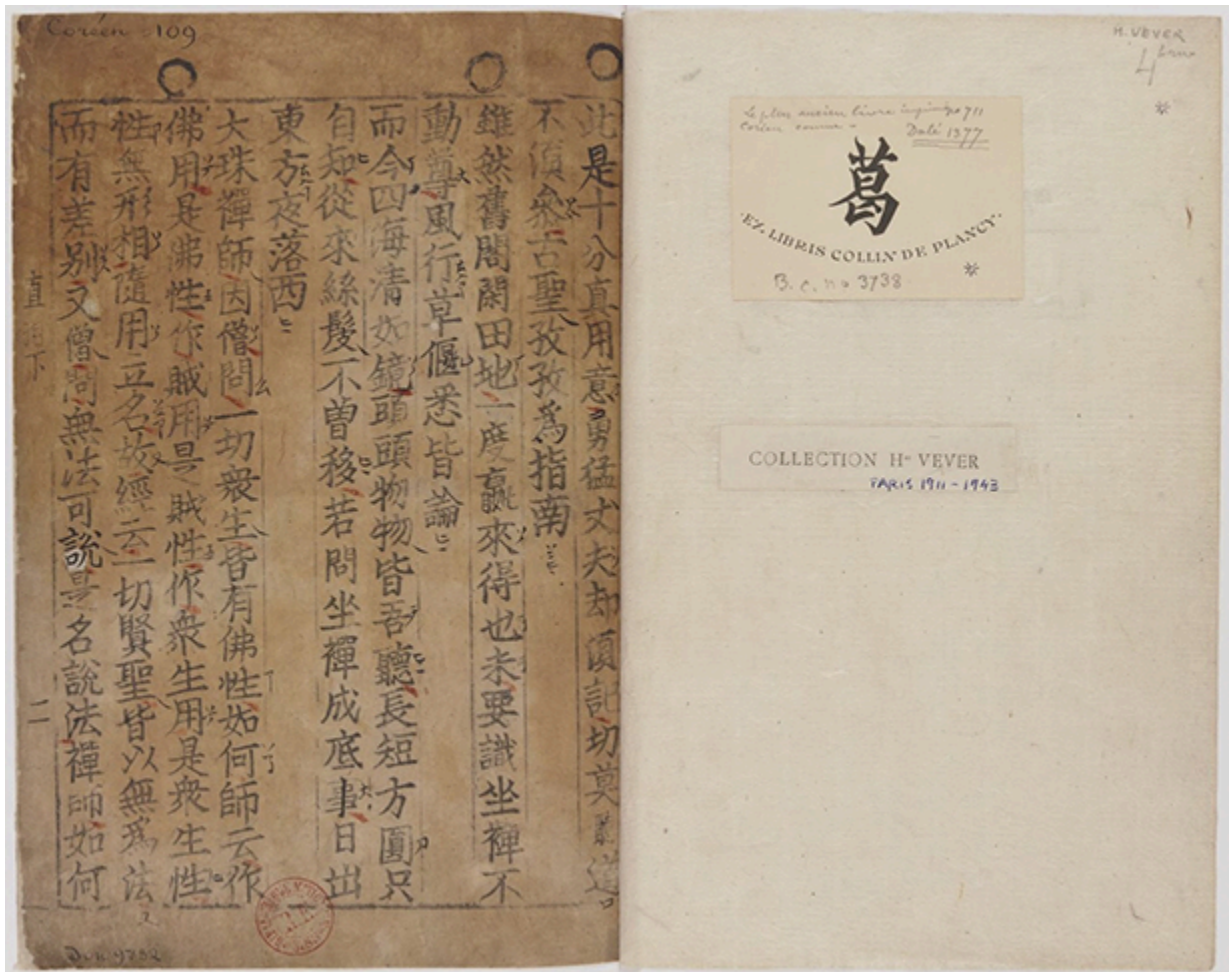 Coréen 109
此是十分真用意勇猛丈夫却須記切莫道
不須叅古聖孜孜爲指南
雖然舊閣閑田地一度贏來得也未要識坐禪不
動尊風行草偃悉皆論
而今四海淸如鏡頭頭物物皆吾聽長短方圓只
自知從來絲髮不曾移若問坐禪成底事日出
東方夜落西
大珠禪師因僧問一切衆生皆有佛性如何師云作
佛用是佛性作賊用是賊性作衆生用是衆生性
性無形相隨用立名故經云一切賢聖皆以無爲法
而有差別又僧問無法可說是名說法禪師如何
直指下 二
H. VEVER
4
Le plus ancien livre imprimé
Coréen connu = Daté 1377
葛
·EX LIBRIS COLLIN DE PLANCY·
B. c. no 3738
COLLECTION Hri VEVER
PARIS 1911-1943